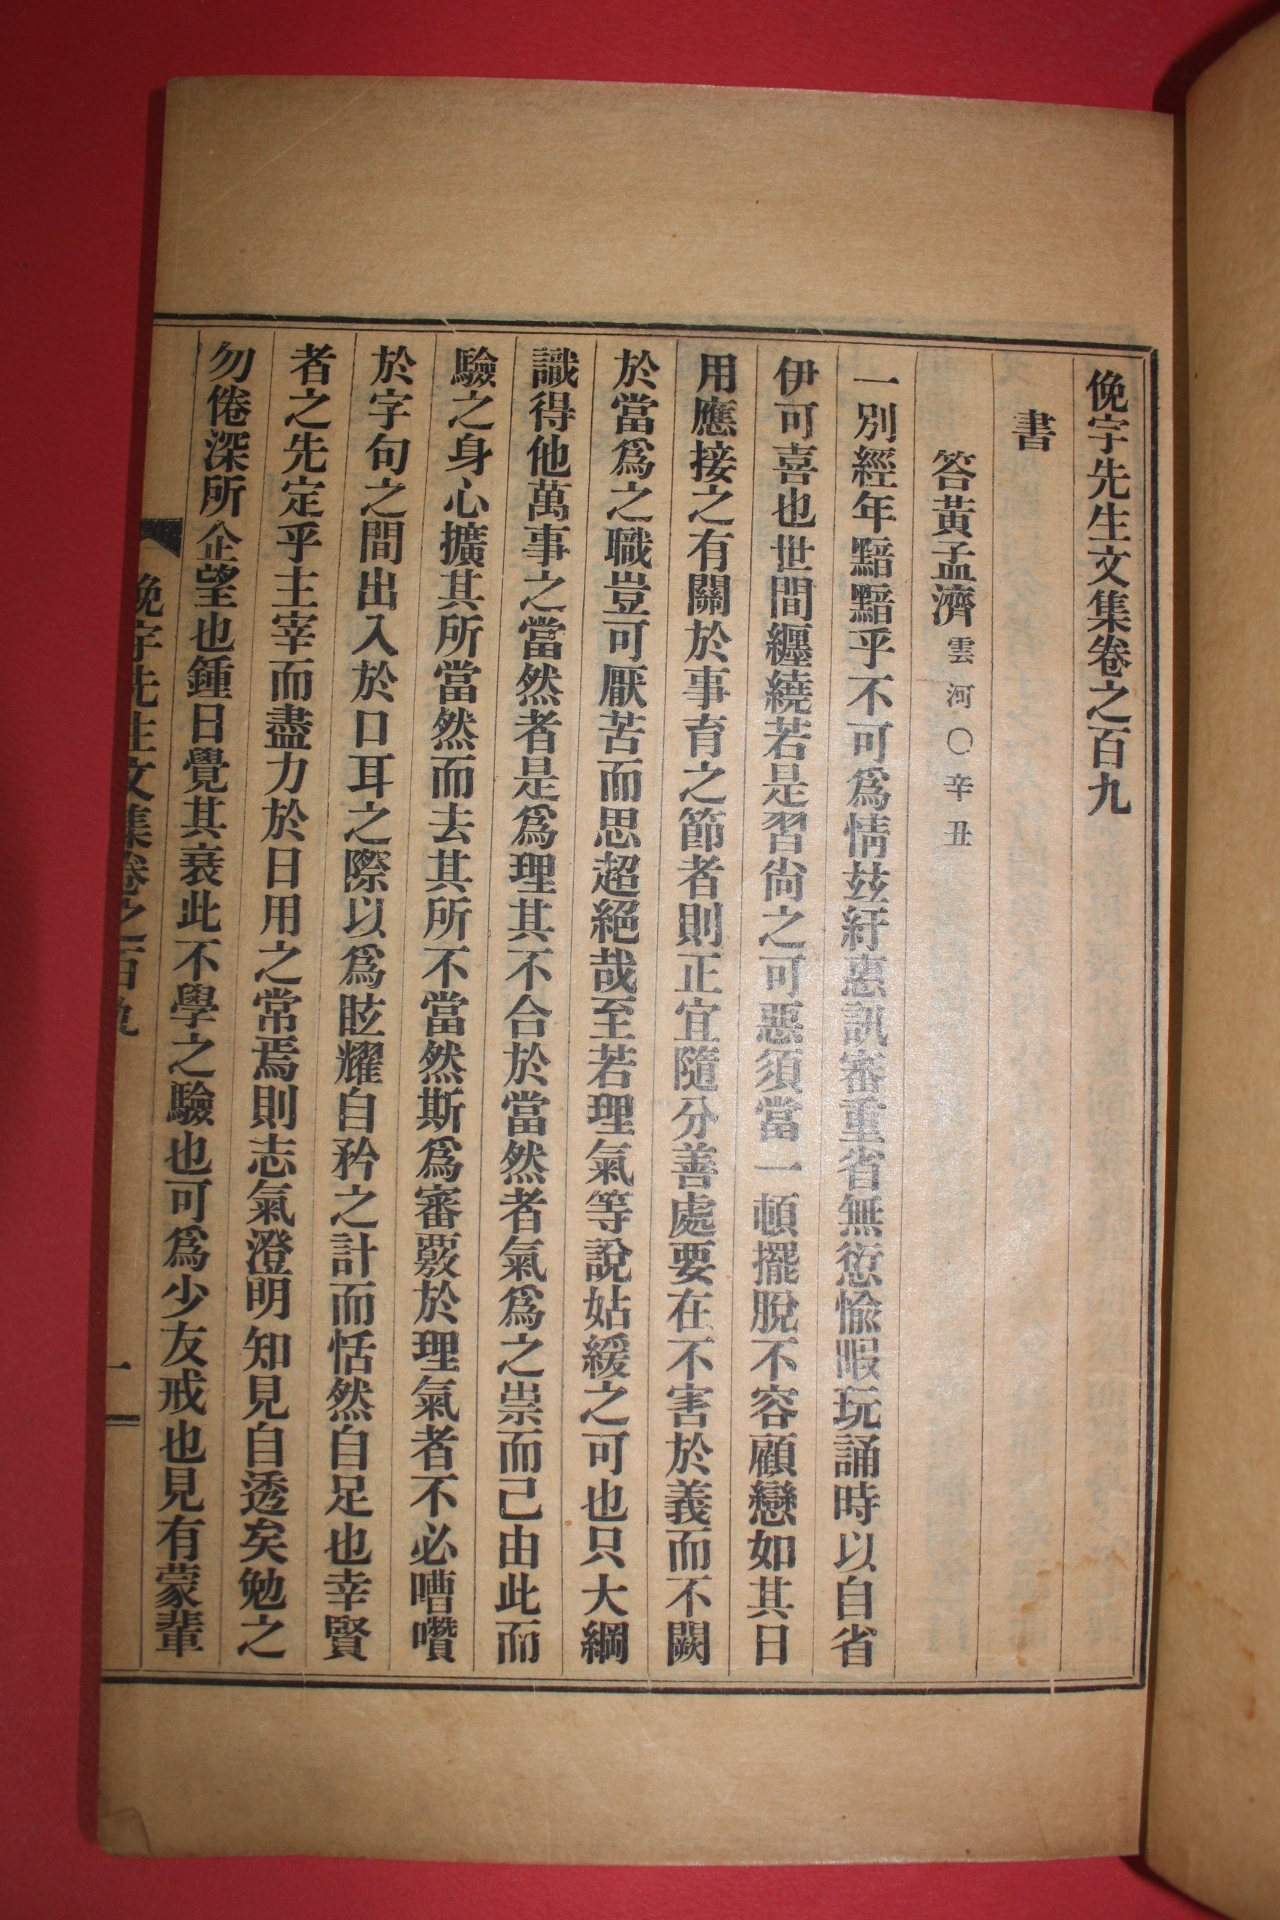 俛宇先生文集卷之百九
書
答黃孟濟 雲河○辛丑
一別經年黯黯乎不可爲情玆紆惠訊審重省無愆愉暇玩誦時以自省
伊可喜也世間纏繞若是習尙之可惡須當一頓擺脫不容顧戀如其日
用應接之有關於事育之節者則正宜隨分善處要在不害於義而不闕
於當爲之職豈可厭苦而思超絕哉至若理氣等說姑緩之可也只大綱
識得他萬事之當然者是爲理其不合於當然者氣爲之祟而己由此而
驗之身心擴其所當然而去其所不當然斯爲審覈於理氣者不必嘈囋
於字句之間出入於口耳之際以爲眩耀自矜之計而恬然自足也幸賢
者之先定乎主宰而盡力於日用之常焉則志氣澄明知見自透矣勉之
勿倦深所企望也鍾日覺其衰此不學之驗也可爲少友戒也見有蒙輩
俛宇先生文集卷之百九
一